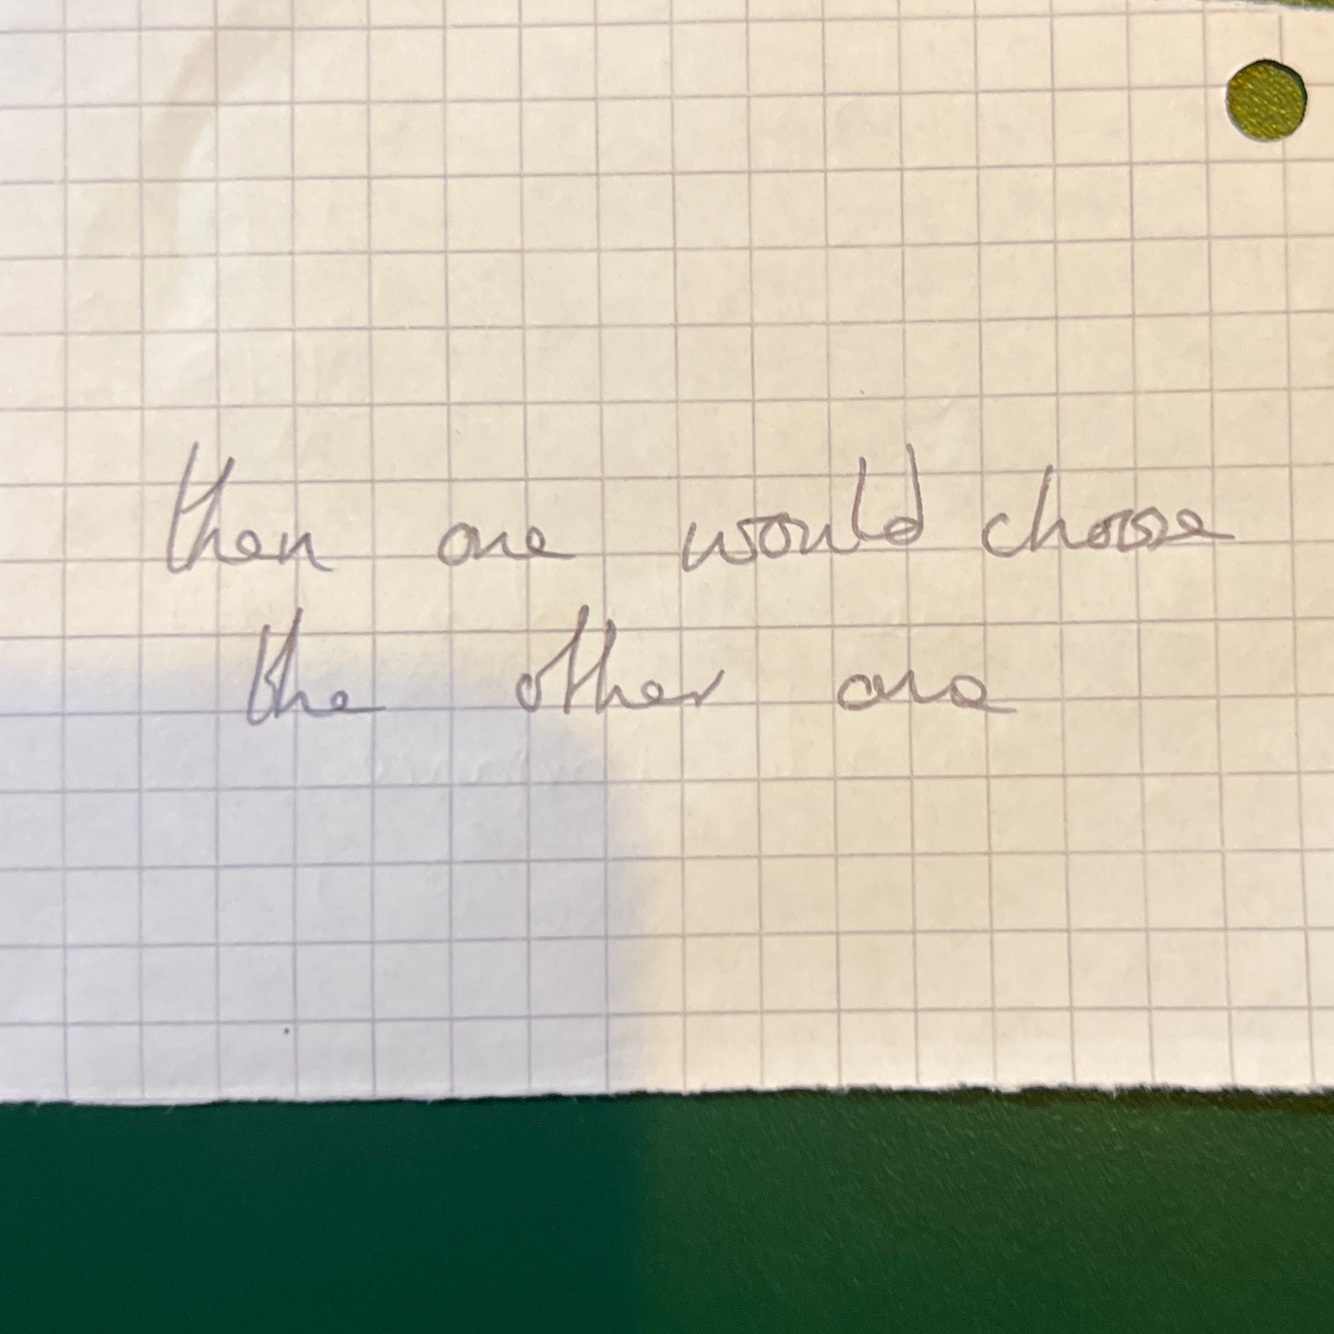 then one would choose
the other one